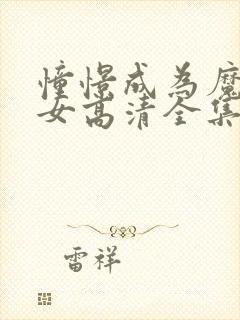 憧憬成为魔
女高清全集
雷祥